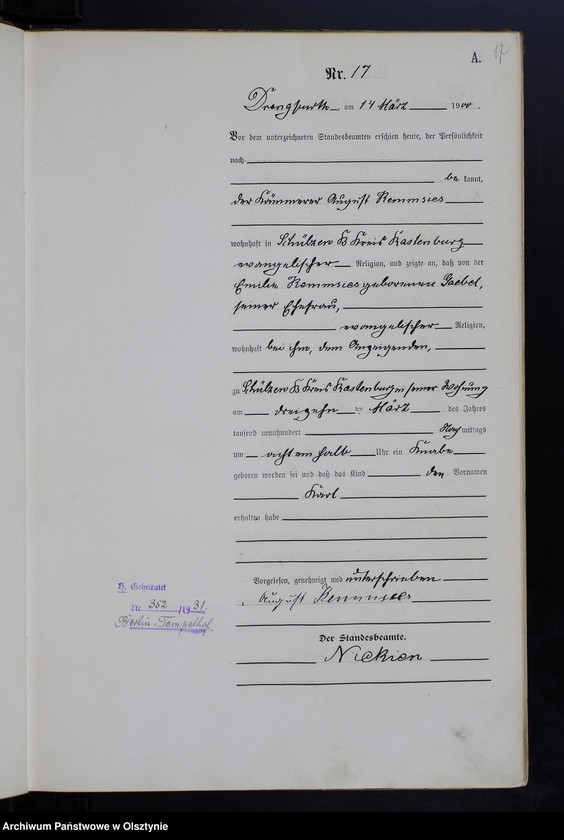 17
A.
Nr. 17
Drengfurth am 14 März 1900.
Vor dem unterzeichneten Standesbeamten erschien heute, der Persönlichkeit
nach
be kannt,
der Kämmerer August Remmsies
wohnhaft in Schülzen B Kreis Rastenburg
evangelischer Religion, und zeigte an, daß von der
Emilie Remmsies geborenen Gaebel,
seiner Ehefrau,
evangelischer Religion,
wohnhaft bei ihm, dem Anzeigenden,
zu Schülzen B Kreis Rastenburg in seiner Wohnung
am dreizehn ten März des Jahres
tausend neunhundert Nachmittags
um acht ein halb Uhr ein Knabe
geboren worden sei und daß das Kind den Vornamen
Karl
erhalten habe
Vorgelesen, genehmigt und unterschrieben
August Remmsies
Der Standesbeamte.
Nickien
H. Geheiratet
Nr. 352/1931.
Berlin-Tempelhof.
Archiwum Państwowe w Olsztynie